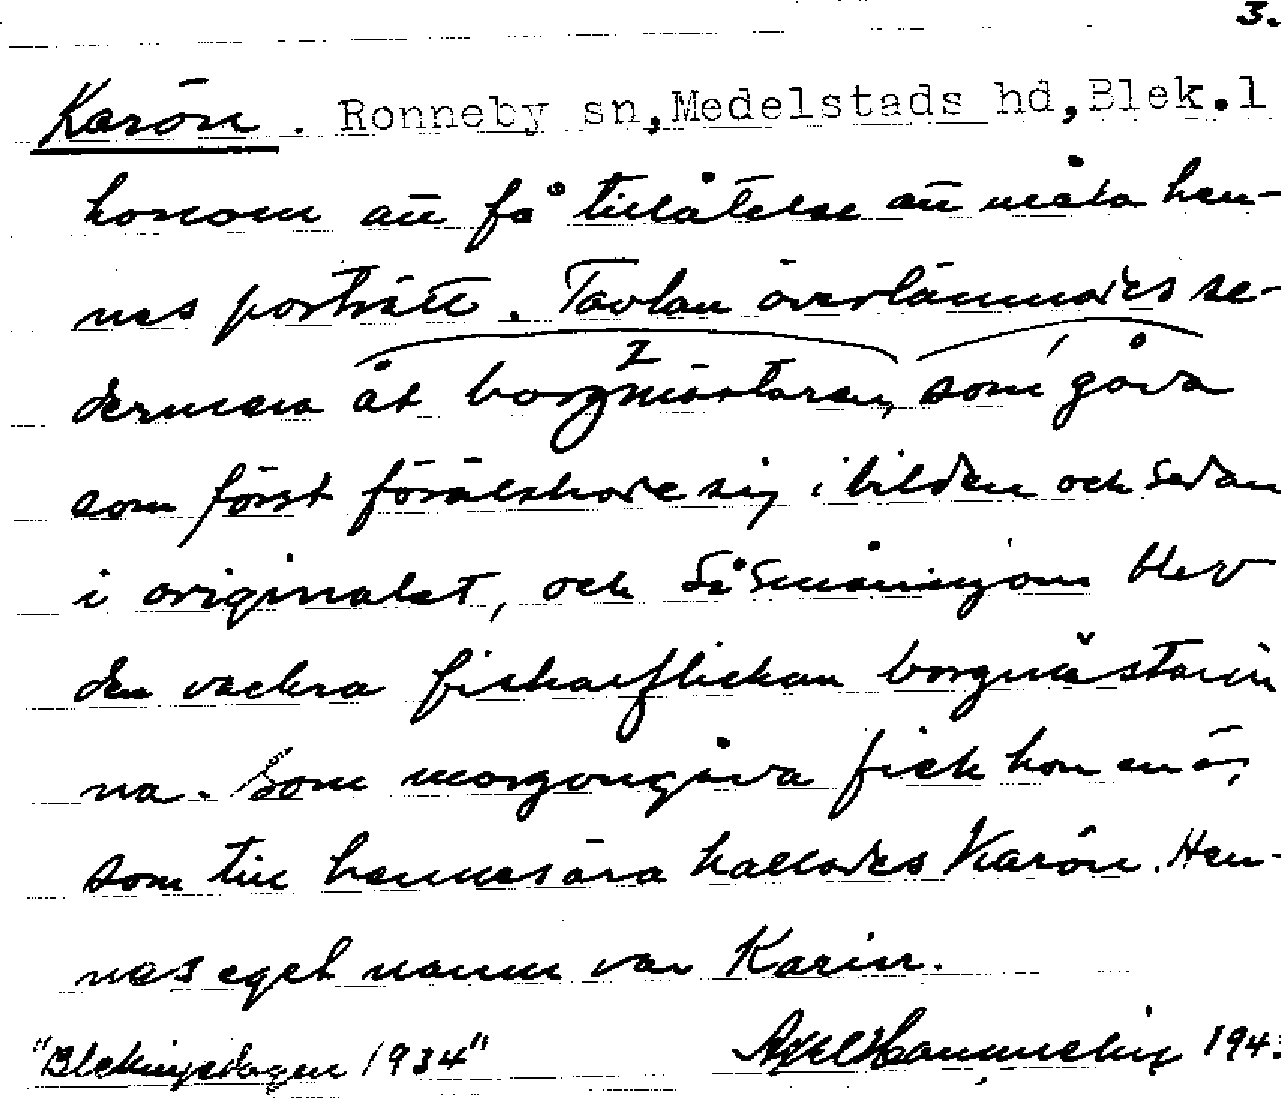 3.
Karön. Ronneby sn, Medelstads hd, Blek. l
honom att få tillåtelse att måla hen-
nes porträtt. Tavlan överlämnades se-
dermera åt borgmästaren, som gåva
som först förälskade sig i bilden och sedan
i originalet, och så småningom blev
den vackra fiskarflickan borgmästarin
na. Som morgongåva fick hon en ö,
som till hennes ära kallades Karön. Hen-
nes eget namn var Karin.
"Blekingedagen 1934" Axel 194